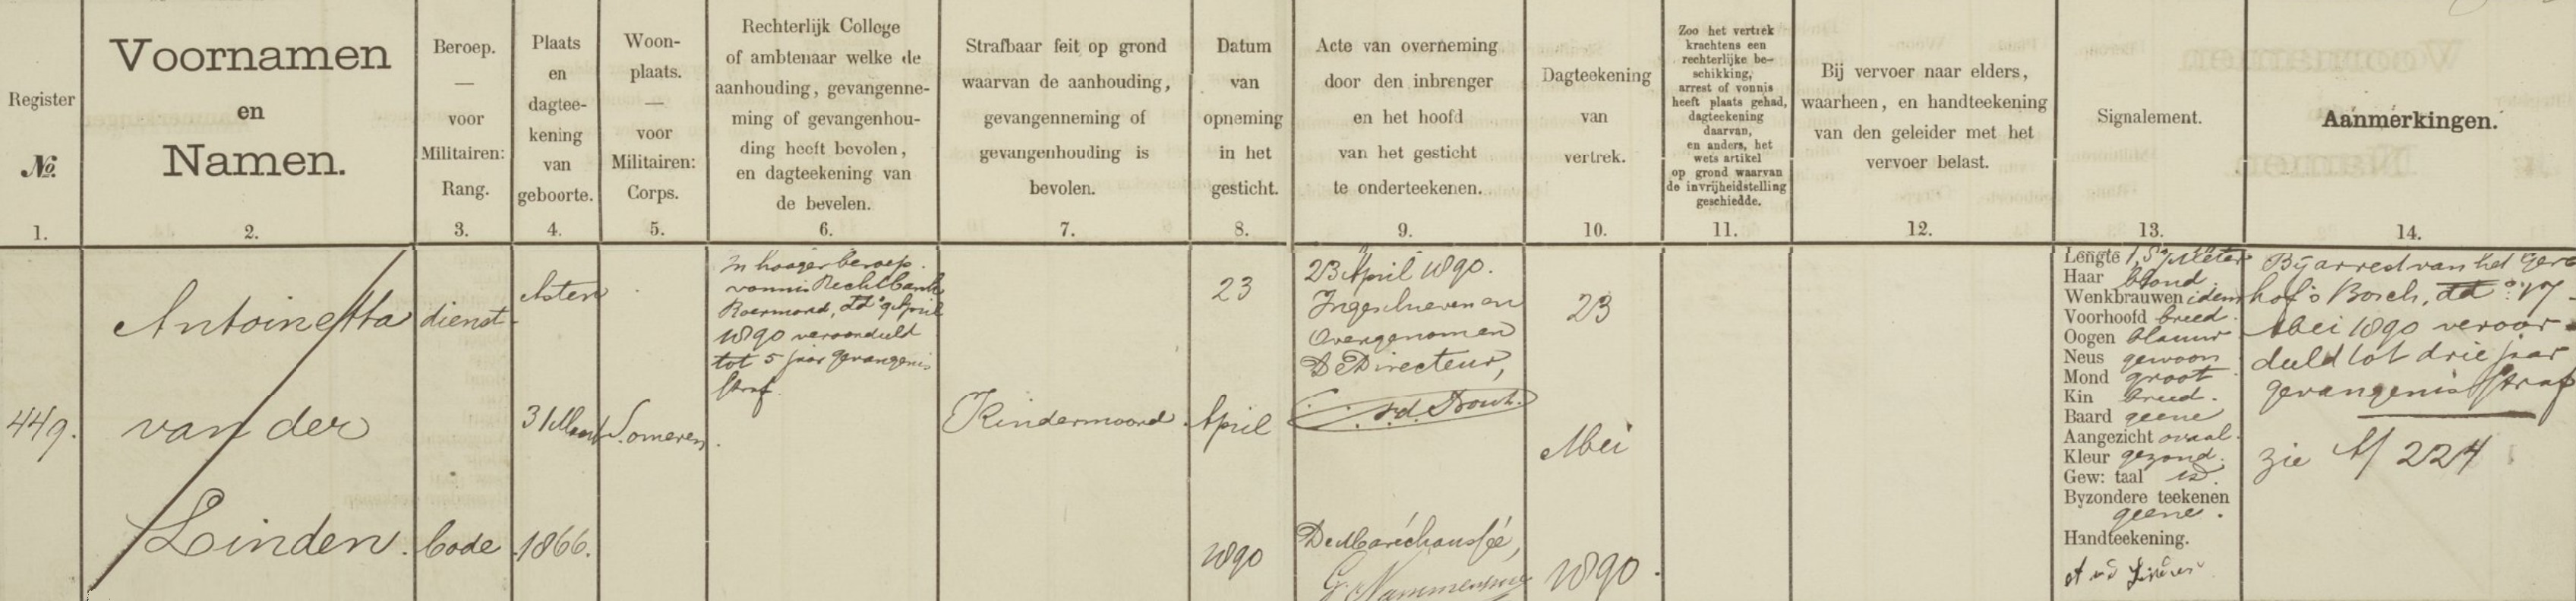 Register
№.
1.
Voornamen
en
Namen.
2.
Beroep.
—
voor
Militairen:
Rang.
3.
Plaats
en
dagtee-
kening
van
geboorte.
4.
Woon-
plaats.
—
voor
Militairen:
Corps.
5.
Rechterlijk College
of ambtenaar welke de
aanhouding, gevangenne-
ming of gevangenhou-
ding heeft bevolen,
en dagteekening van
de bevelen.
6.
Strafbaar feit op grond
waarvan de aanhouding,
gevangenneming of
gevangenhouding is
bevolen.
7.
Datum
van
opneming
in het
gesticht.
8.
Acte van overneming
door den inbrenger
en het hoofd
van het gesticht
te onderteekenen.
9.
Dagteekening
van
vertrek.
10.
Zoo het vertrek
krachtens een
rechterlijke be-
schikking,
arrest of vonnis
heeft plaats gehad,
dagteekening
daarvan,
en anders, het
wets artikel
op grond waarvan
de invrijheidstelling
geschiedde.
11.
Bij vervoer naar elders,
waarheen, en handteekening
van den geleider met het
vervoer belast.
12.
Signalement.
13.
Aanmerkingen.
14.
449.
Antoinetta
van der
Linden.
dienst-
bode
Asten
31 Maart
1866.
Someren.
In hooger beroep.
vonnis Rechtbank
Roermond, dd° 9 April
1890 veroordeeld
tot 5 jaar gevangenis
straf
Kindermoord.
23
April
1890
23 April 1890.
Ingeschreven en
Overgenomen
De Directeur,
De Maréchaussée,
23
Mei
1890.
Lengte Meter
Haar blond
Wenkbrauwen idem
Voorhoofd breed.
Oogen blauw
Neus gewoon
Mond groot
Kin breed.
Baard geene
Aangezicht ovaal.
Kleur gezond.
Gew: taal
Byzondere teekenen
geene.
Handteekening.
A v d Linden
Bij arrest van het Gere
hof 's Bosch, dd°: 17
Mei 1890 veroor-
deeld tot drie jaar
gevangenisstraf
zie N 224